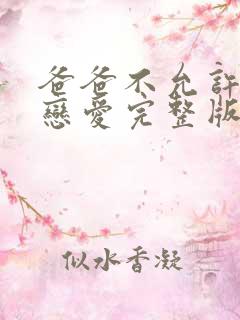 爸爸不允許
戀愛完整版
似水香凝